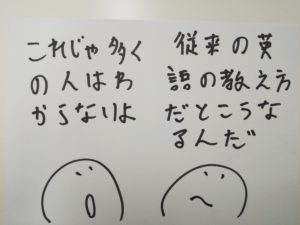 これじゃ多く
の人はわ
からないよ
従来の英
語の教え方
だとこうな
るんだ